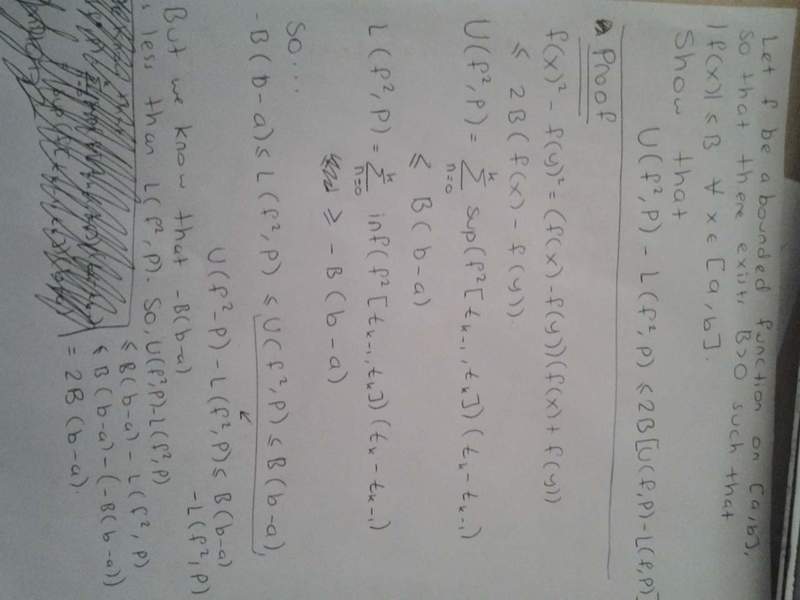 Let f be a bounded function on [a,b],
so that there exists B>0 such that
|f(x)| ≤ B ∀ x ∈ [a,b].
Show that
U(f²,P) - L(f²,P) ≤ 2B[U(f,P)-L(f,P)]
Proof
f(x)² - f(y)² = (f(x) - f(y))(f(x) + f(y))
≤ 2B(f(x) - f(y)).
U(f²,P) = Σ_{n=0}^{k} sup(f²[t_{k-1},t_k])(t_k - t_{k-1})
≤ B(b-a)
L(f²,P) = Σ_{n=0}^{k} inf(f²[t_{k-1},t_k])(t_k - t_{k-1})
≥ -B(b-a)
So....
-B(b-a) ≤ L(f²,P) ≤ U(f²,P) ≤ B(b-a),
U(f²-P) - L(f²,P) ≤ B(b-a)
-L(f²,P)
But we know that -B(b-a)
is less than L(f²,P). So, U(f²,P)-L(f²,P)
≤ B(b-a) - L(f²,P)
≤ B(b-a) - (-B(b-a))
= 2B(b-a).